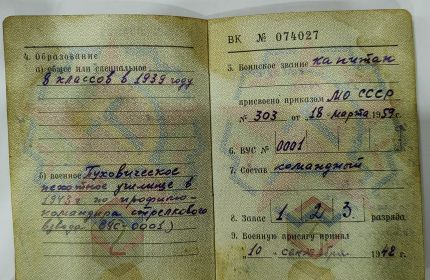 4. Образование
а) общее или специальное
8 классов в 1939 году
б) военное Пуховичское
пехотное училище в
1943 г. по профилю
командира стрелкового
взвода (ВУС-0001)
ВК № 074027
5. Воинское звание капитан
присвоено приказом МО СССР
№ 303 от 18 марта 1959 г.
6. ВУС № 0001
7. Состав командный
8. Запас 1 2 3. разряда
9. Военную присягу принял
10 сентября 1942 г.